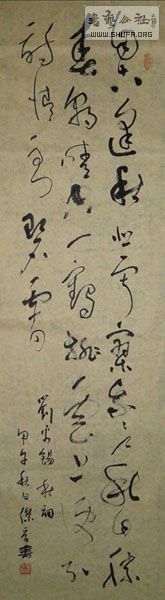 書藝公社
WWW.SHUFA.ORG
自古逢秋悲寂寥我言秋日勝
春朝晴空一鶴排雲上便引
詩情到碧霄
劉禹錫秋詞
甲午秋日傑書